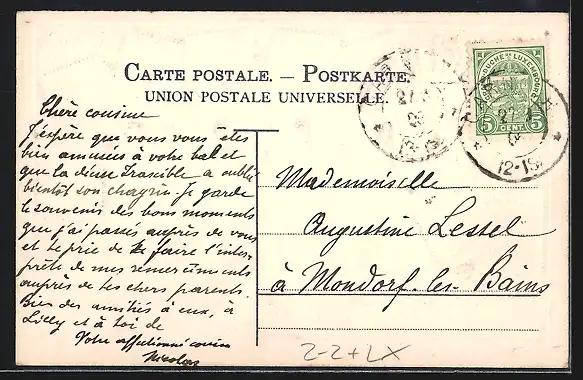 CARTE POSTALE. — POSTKARTE.
UNION POSTALE UNIVERSELLE.
Chère cousine
J'espère que vous vous êtes
bien amusées à votre bal et
que la diva Irascible a oublié
bientôt son chagrin. Je garde
le souvenir des bons moments
que j'ai passés auprès de vous
et te prie de faire l'inter-
prète de mes remerciments
auprès de tes chers parents.
Bien des amitiés à eux, à
Lilly et à toi de
Votre affectionné cousin
Nicolas
GRAND-DUCHÉ DE LUXEMBOURG
5 CENT. 5
27
12-1S
27
12-1S
Mademoiselle
Augustine Lessel
à Mondorf-les-Bains
2-2+LX